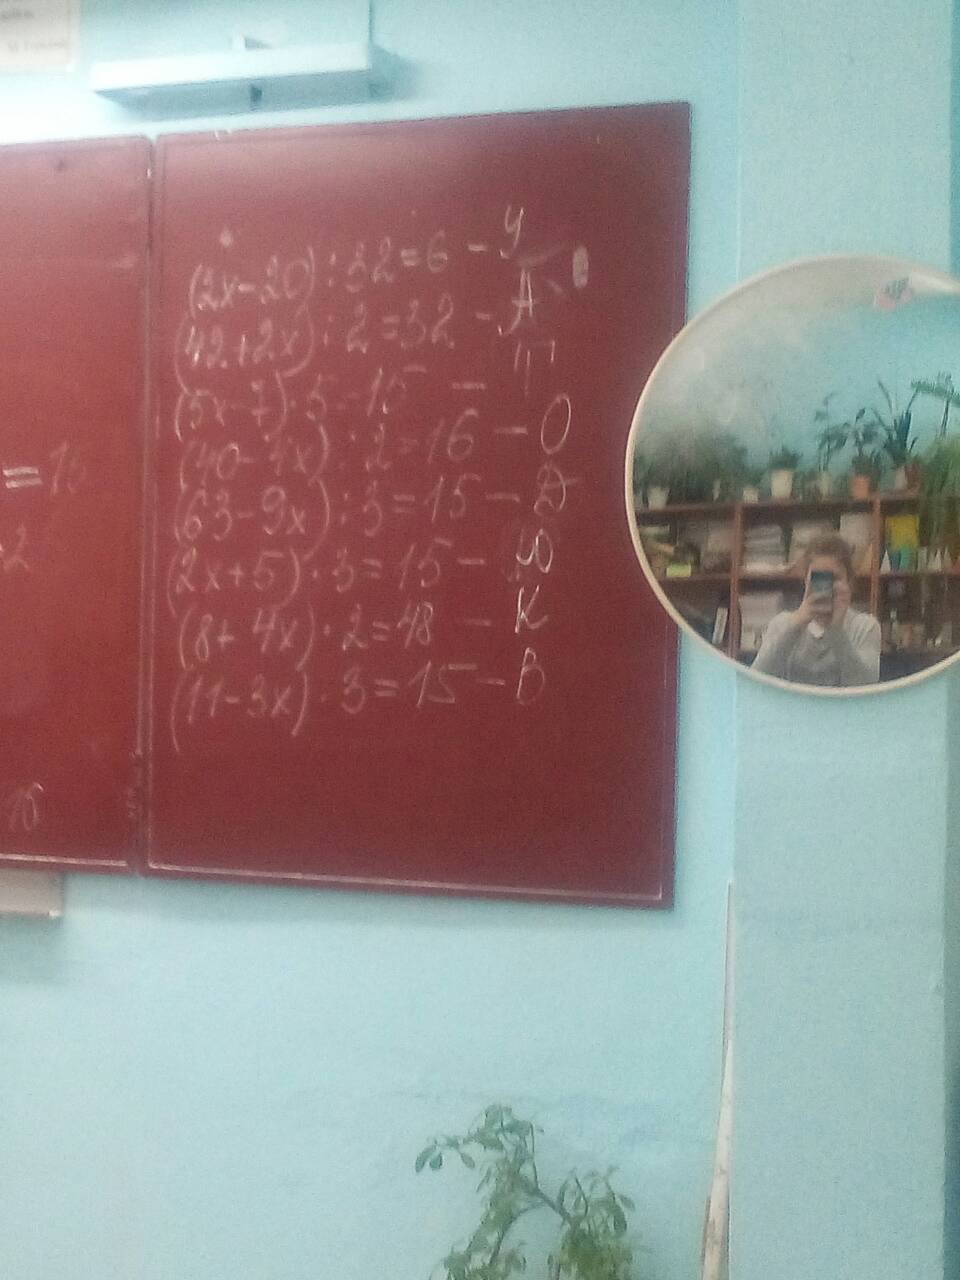 (2x-20):32=6 - У
(42+2x):2=32 - А
(5x-7)·5=15 - П
(40-4x):2=16 - О
(63-9x):3=15 - Д
(2x+5)·3=15 - Ю
(8+4x)·2=48 - К
(11-3x)·3=15 - В